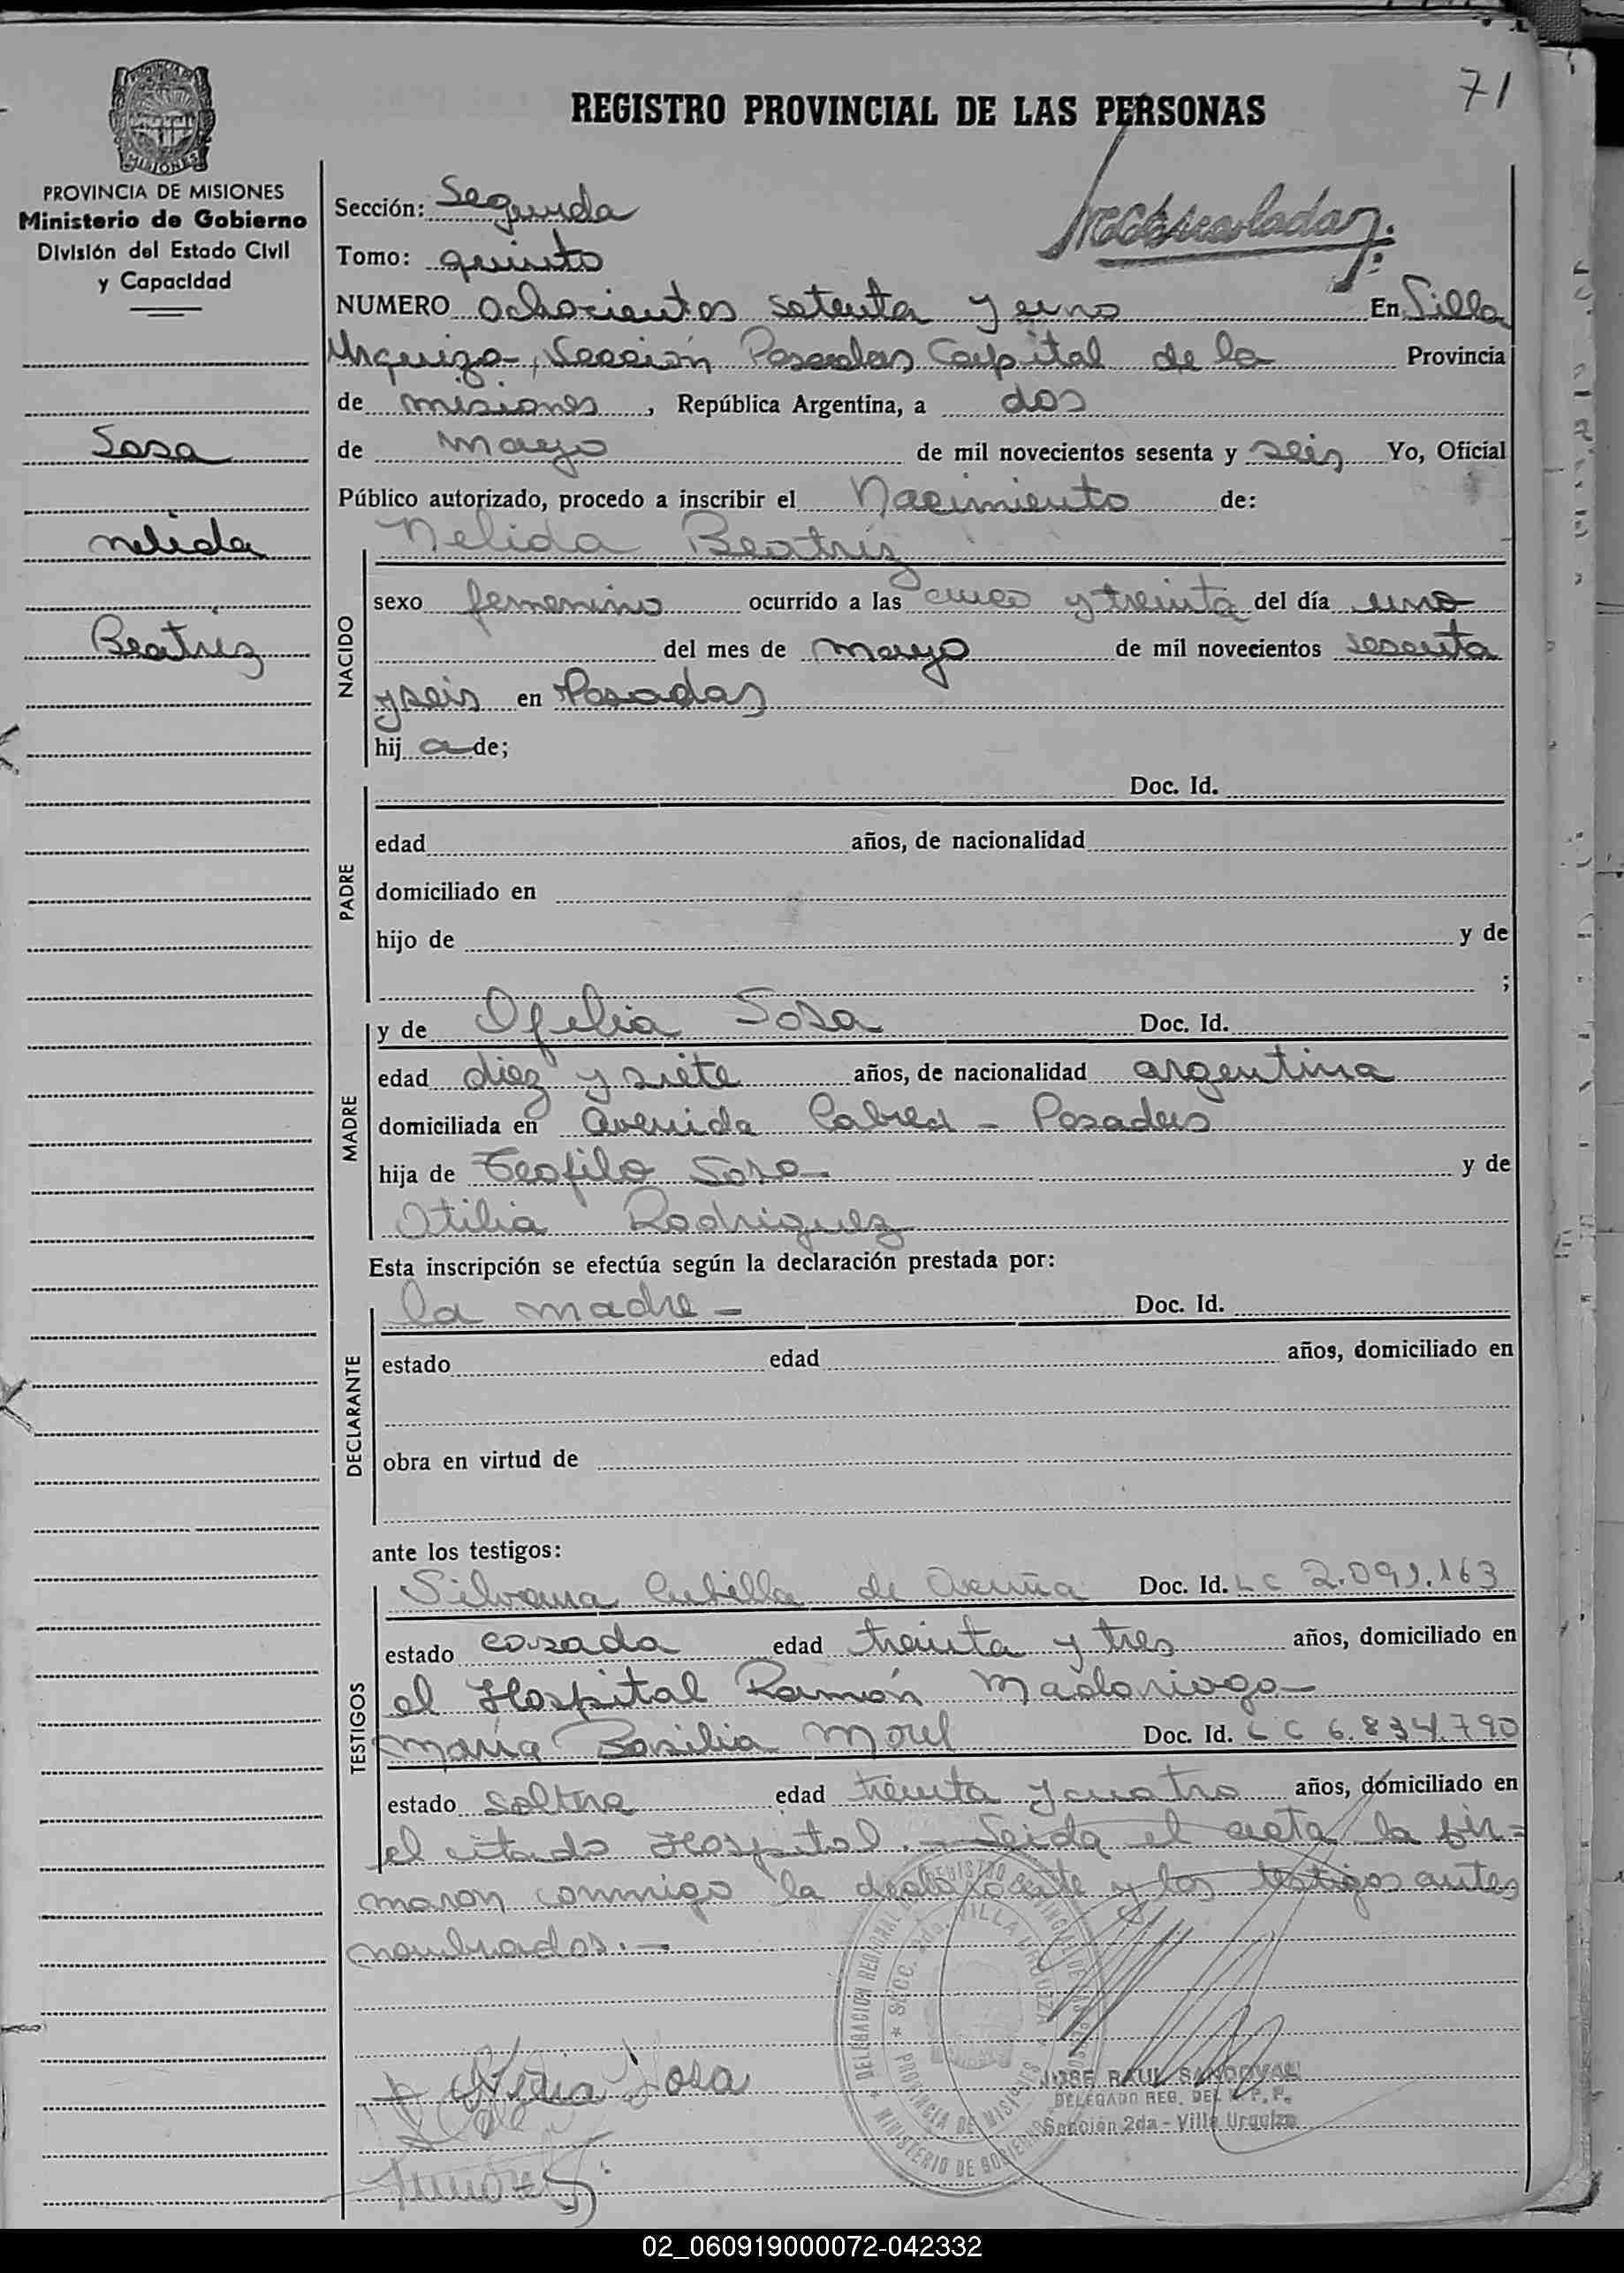 71
REGISTRO PROVINCIAL DE LAS PERSONAS
PROVINCIA DE MISIONES
MISIONES
PROVINCIA DE MISIONES
Ministerio de Gobierno
División del Estado Civil
y Capacidad
Sosa
nelida
Beatriz
Sección: Segunda
Tomo: quinto
NUMERO ochocientos setenta y uno En Villa
Urquiza, Sección Posadas Capital de la Provincia
de misiones, República Argentina, a dos
de mayo de mil novecientos sesenta y seis Yo, Oficial
Público autorizado, procedo a inscribir el Nacimiento de:
NACIDO
Nelida Beatriz
sexo femenino ocurrido a las cinco y treinta del día uno
del mes de mayo de mil novecientos sesenta
y seis en Posadas
hij a de;
PADRE
Doc. Id.
edad años, de nacionalidad
domiciliado en
hijo de y de
;
MADRE
y de Ofelia Sosa Doc. Id.
edad diez y siete años, de nacionalidad argentina
domiciliada en avenida Cabred - Posadas
hija de Teofilo Sosa- y de
Otilia Rodriguez
Esta inscripción se efectúa según la declaración prestada por:
DECLARANTE
la madre - Doc. Id.
estado edad años, domiciliado en
obra en virtud de
ante los testigos:
TESTIGOS
Silvana Cubilla de Acuña Doc. Id. LC 2.091.163
estado casada edad treinta y tres años, domiciliado en
el Hospital Ramón Madariaga-
maria Basilia Morel Doc. Id. LC 6.834.790
estado soltera edad treinta y cuatro años, domiciliado en
el citado Hospital.- Leida el acta la fir=
maron conmigo la declarante y los testigos antes
nombrados.-
Sosa
DELEGACION REGIONAL DEL REGISTRO PROVINCIAL DE LAS PERSONAS
* SECC. 2da. VILLA URQUIZA *
PROVINCIA DE MISIONES
* MINISTERIO DE GOBIERNO
JOSE RAUL SANDOVAL
DELEGADO REG. DEL R. P. P.
Sección 2da - Villa Urquiza
02_060919000072-042332